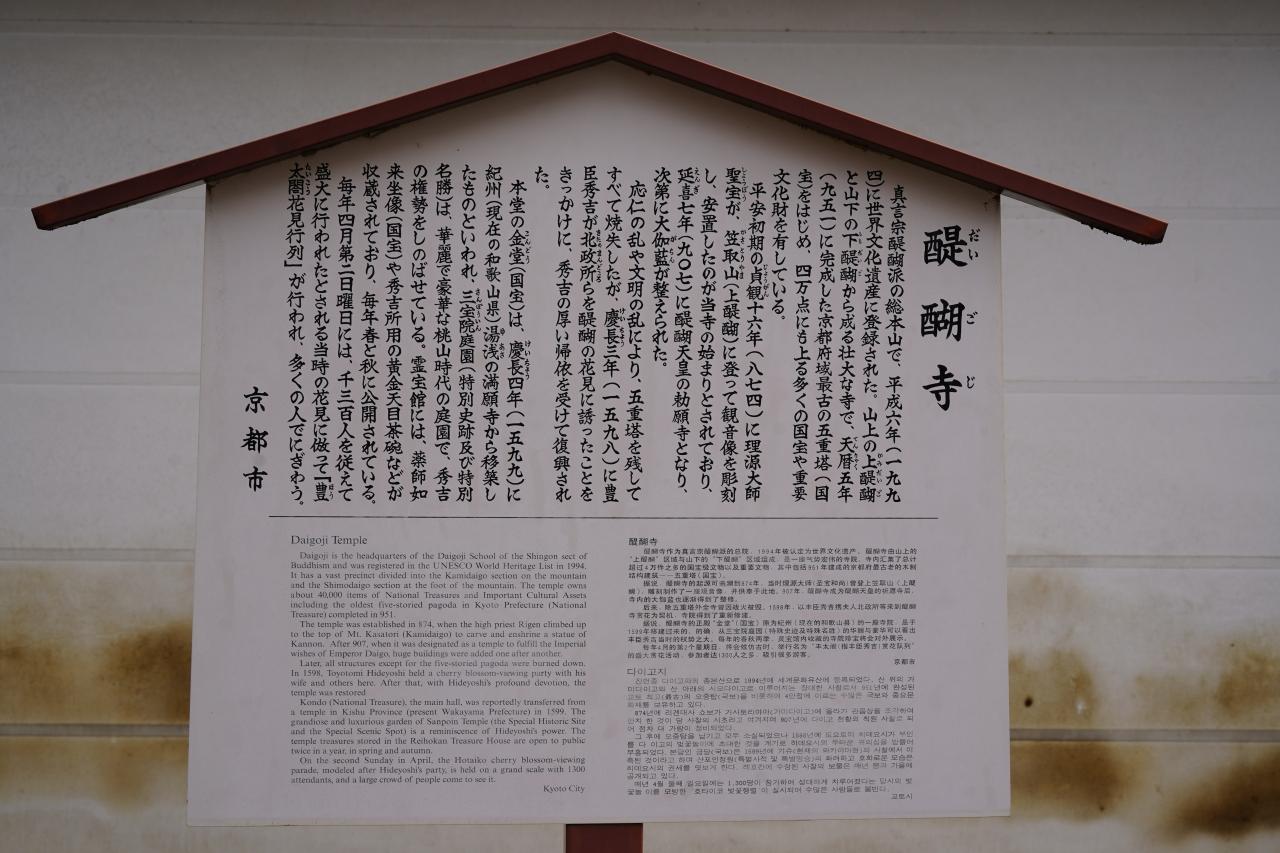 醍醐寺
だいごじ
真言宗醍醐派の総本山で、平成六年(一九九
四)に世界文化遺産に登録された。山上の上醍醐
と山下の下醍醐から成る壮大な寺で、天暦五年
(九五一)に完成した京都府域最古の五重塔(国
宝)をはじめ、四万点にも上る多くの国宝や重要
文化財を有している。
平安初期の貞観十六年(八七四)に理源大師
聖宝が、笠取山(上醍醐)に登って観音像を彫刻
し、安置したのが当寺の始まりとされており、
延喜七年(九〇七)に醍醐天皇の勅願寺となり、
次第に大伽藍が整えられた。
応仁の乱や文明の乱により、五重塔を残して
すべて焼失したが、慶長三年(一五九八)に豊
臣秀吉が北政所らを醍醐の花見に誘ったことを
きっかけに、秀吉の厚い帰依を受けて復興され
た。
本堂の金堂(国宝)は、慶長四年(一五九九)に
紀州(現在の和歌山県)湯浅の満願寺から移築し
たものといわれ、三宝院庭園(特別史跡及び特別
名勝)は、華麗で豪華な桃山時代の庭園で、秀吉
の権勢をしのばせている。霊宝館には、薬師如
来坐像(国宝)や秀吉所用の黄金天目茶碗などが
収蔵されており、毎年春と秋に公開されている。
毎年四月第二日曜日には、千三百人を従えて
盛大に行われたとされる当時の花見に倣って「豊
太閤花見行列」が行われ、多くの人でにぎわう。
京都市
Daigoji Temple
Daigoji is the headquarters of the Daigoji School of the Shingon sect of
Buddhism and was registered in the UNESCO World Heritage List in 1994.
It has a vast precinct divided into the Kamidaigo section on the mountain
and the Shimodaigo section at the foot of the mountain. The temple owns
about 40,000 items of National Treasures and Important Cultural Assets
including the oldest five-storied pagoda in Kyoto Prefecture (National
Treasure) completed in 951.
The temple was established in 874, when the high priest Rigen climbed up
to the top of Mt. Kasatori (Kamidaigo) to carve and enshrine a statue of
Kannon. After 907, when it was designated as a temple to fulfill the Imperial
wishes of Emperor Daigo, huge buildings were added one after another.
Later, all structures except for the five-storied pagoda were burned down.
In 1598, Toyotomi Hideyoshi held a cherry blossom-viewing party with his
wife and others here. After that, with Hideyoshi's profound devotion, the
temple was restored
Kondo (National Treasure), the main hall, was reportedly transferred from
a temple in Kishu Province (present Wakayama Prefecture) in 1599. The
grandiose and luxurious garden of Sanpoin Temple (the Special Historic Site
and the Special Scenic Spot) is a reminiscence of Hideyoshi's power. The
temple treasures stored in the Reihokan Treasure House are open to public
twice in a year, in spring and autumn.
On the second Sunday in April, the Hotaiko cherry blossom-viewing
parade, modeled after Hideyoshi's party, is held on a grand scale with 1300
attendants, and a large crowd of people come to see it.
Kyoto City
醍醐寺
醍醐寺作为真言宗醍醐派的总院，1994年被认定为世界文化遗产。醍醐寺由山上的
"上醍醐"区域与山下的"下醍醐"区域组成，是一座气势宏伟的寺院。寺内汇集了总计
超过4万件之多的国宝级文物以及重要文物，其中包括951年建成的京都府最古老的木制
结构建筑——五重塔（国宝）。
据说，醍醐寺的起源可追溯到874年，当时理源大师（圣宝和尚）曾登上笠取山（上醍
醐），雕刻制作了一座观音像，并供奉于此地。907年，醍醐寺成为醍醐天皇的祈愿寺后，
寺内的大伽蓝也逐渐得到了整修。
京都市
다이고지
교토시